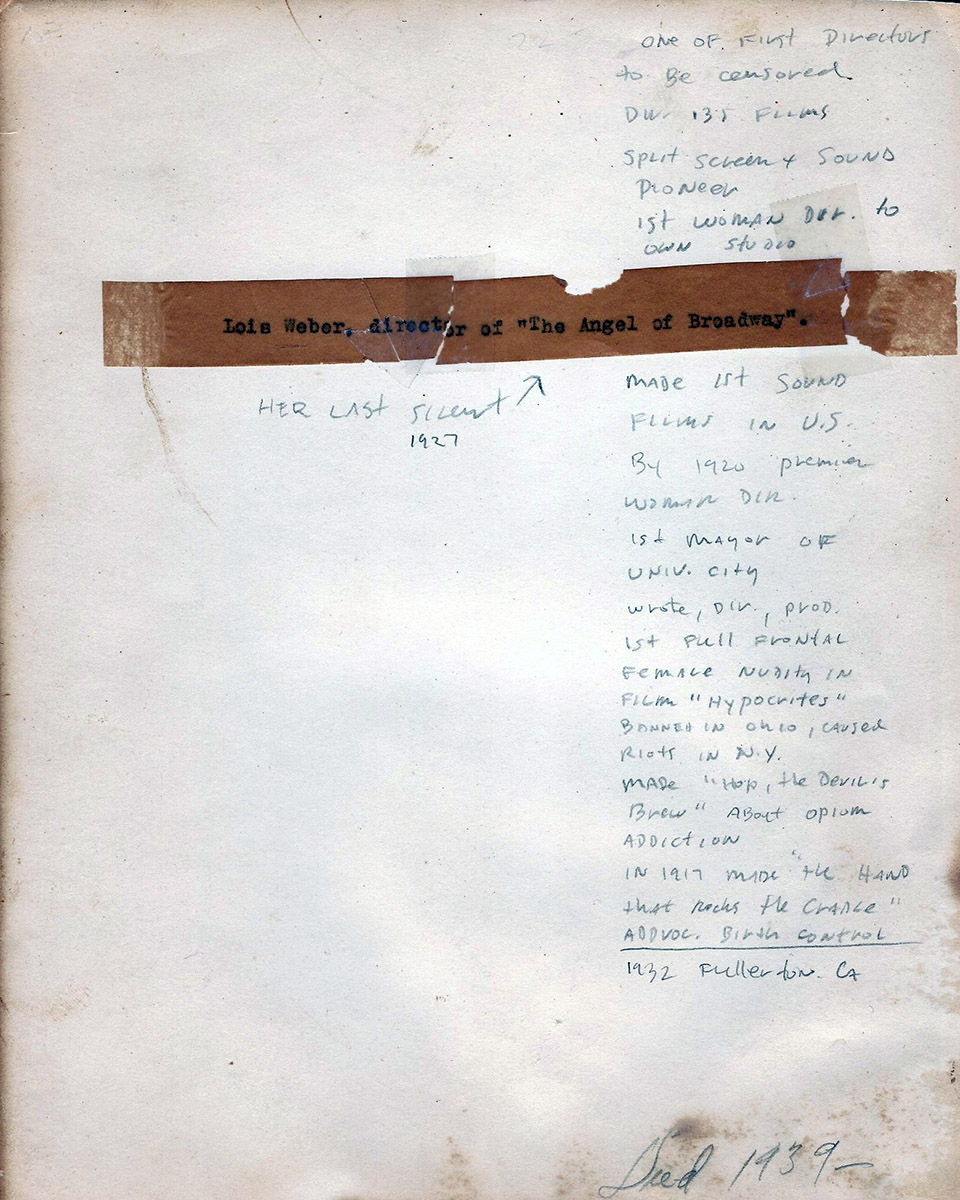 one of First Directors
to Be censored
Dir. 135 Films
Split Screen & SOUND
Pioneer
1st WOMAN Dir. to
OWN Studio
Lois Weber, director of "The Angel of Broadway".
HER LAST silent ↗
1927
MADE 1st SOUND
FILMS IN U.S.
By 1920 premier
WOMAN DIR.
1st MAYOR OF
UNIV. City
wrote, DIR., prod.
1st Full FRONTAL
FEMALE NUDITY IN
FILM "Hypocrites"
BANNED IN Ohio, CAUSED
Riots IN N.Y.
MADE "Hop, the Devil's
Brew" ABout opium
ADDICTION
IN 1917 MADE "the HAND
that Rocks the CRADLE"
ADDVOC. Birth CONTROL
1932 Fullerton. CA
Died 1939—